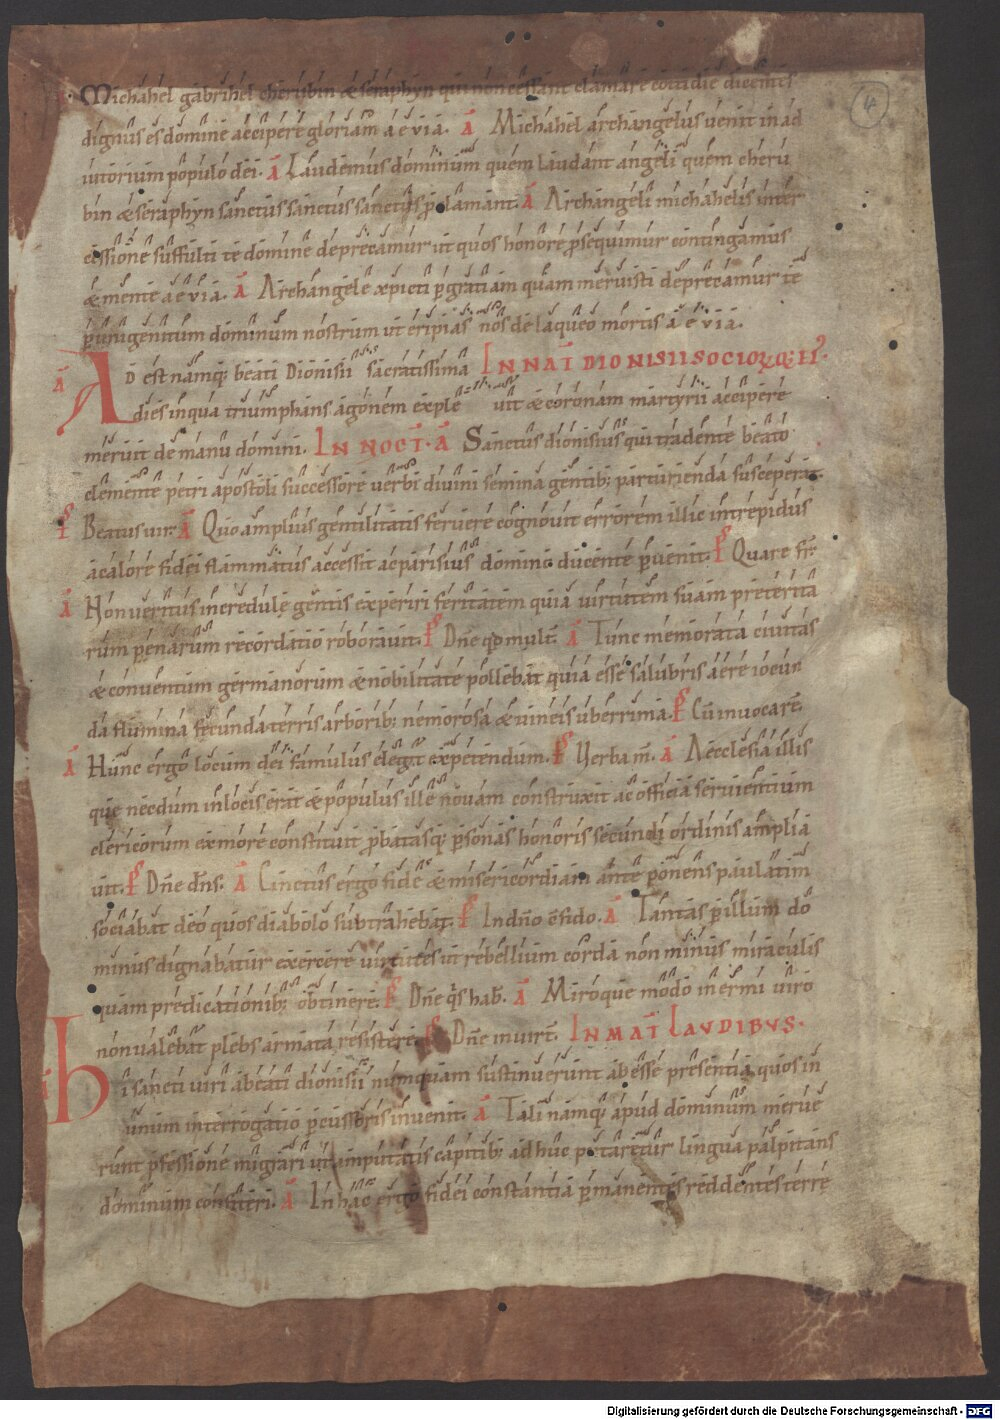 Michahel gabrihel cherubin & seraphyn qui non cessant clamare cottidie dicentes
dignus es domine accipere gloriam aevia. A Michahel archangelus uenit in ad
iutorium populo dei. A Laudemus dominum quem laudant angeli quem cheru
bin & seraphyn sanctus sanctus sanctus proclamant. A Archangeli michahelis inter
cessione suffulti te domine deprecamur ut quos honore psequimur contingamus
& mente aevia. A Archangele xpicti p gratiam quam meruisti deprecamur te
p unigenitum dominum nostrum ut eripias nos de laqueo mortis aevia.
A AD est namq; beati Dionisii sacratissima IN NAT DIONISII SOCIORQ; EI.
dies in qua triumphans agonem exple uit & coronam martyrii accipere
meruit de manu domini. IN NOCT. A Sanctus dionisius qui tradente beato
clemente petri apostoli successore uerbi diuini semina gentib; parturienda susceperat.
Ps Beatus uir. A Quo amplius gentilitatis feruere cognouit errorem illic intrepidus
ac calore fidei flammatus accessit ac parisius domino ducente puenit. Ps Quare fr.
A Non ueritus incredulę gentis experiri feritatem quia uirtutem suam preterita
rum penarum recordatio roborauit. Ps Dne qd mult. A Tunc memorata ciuitas
& conuentum germanorum & nobilitate pollebat quia esse salubris aere iocun
da flumina fecunda terris arborib; nemorosa & uineis uberrima. Ps Cu inuocare.
A Hunc ergo locum dei famulus elegit expetendum. Ps Uerba m. A Aecclesia illis
que necdum in locis erat & populus ille nouam construxit ac officia seruientium
clericorum ex more constituit pbatasq; psonas honoris secundi ordinis amplia
uit. Ps Dne dns. A Cinctus ergo fide & misericordiam ante ponens paulatim
sociabat deo quos diabolo subtrahebat. Ps In dno cfido. A Tantas p illum do
minus dignabatur exercere uirtutes ut rebellium corda non minus miraculis
quam predicationib; obtineret. Ps Dne qs hab. A Miroque modo inermi uiro
non ualebat plebs armata resistere. Ps Dne in uirt. IN MAT LAUDIBUS.
A Hi sancti uiri a beati dionisii numquam sustinuerunt abesse presentia quos in
unum interrogatio pcussoris inuenit. A Tali namq; apud dominum merue
runt pfessione migrari ut amputatis capitib; adhuc putaretur lingua palpitans
dominum confiteri. A In hac ergo fidei constantia pmanentes reddentes terrę
4
Digitalisierung gefördert durch die Deutsche Forschungsgemeinschaft - DFG